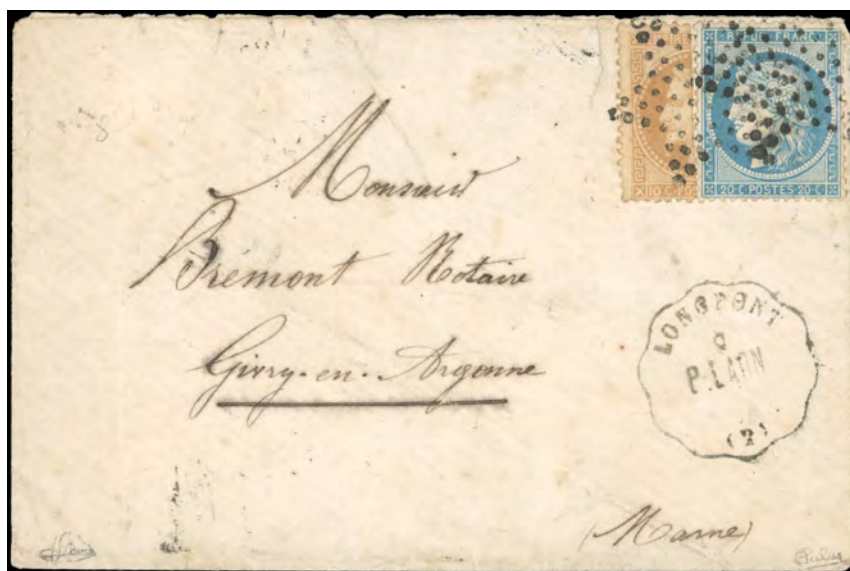 REPUB. FRANC.
10 C. 10
20·C·POSTES·20·C
Monsieur
Brémont Notaire
Givry-en-Argonne
(Marne)
LONGPONT
P.LAON
(2)